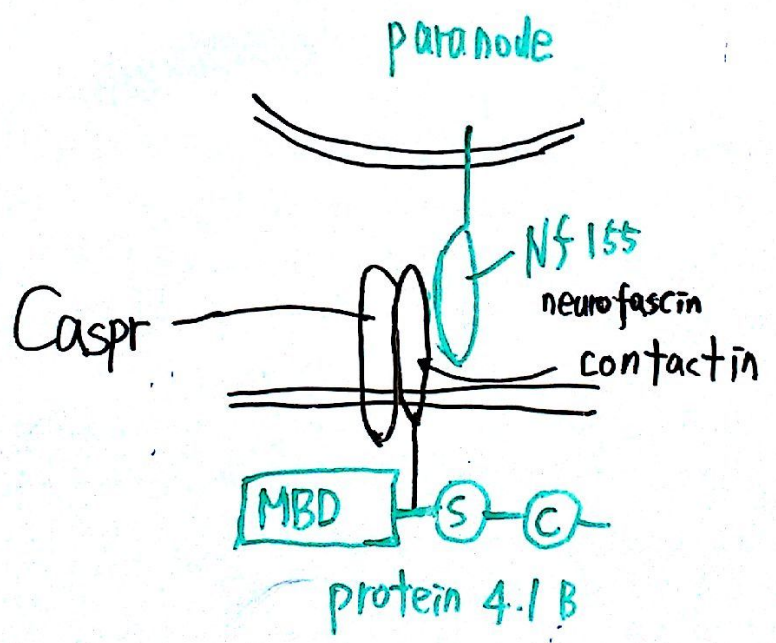 paranode
Nf155
neurofascin
Caspr
contactin
MBD
S
C
protein 4.1 B